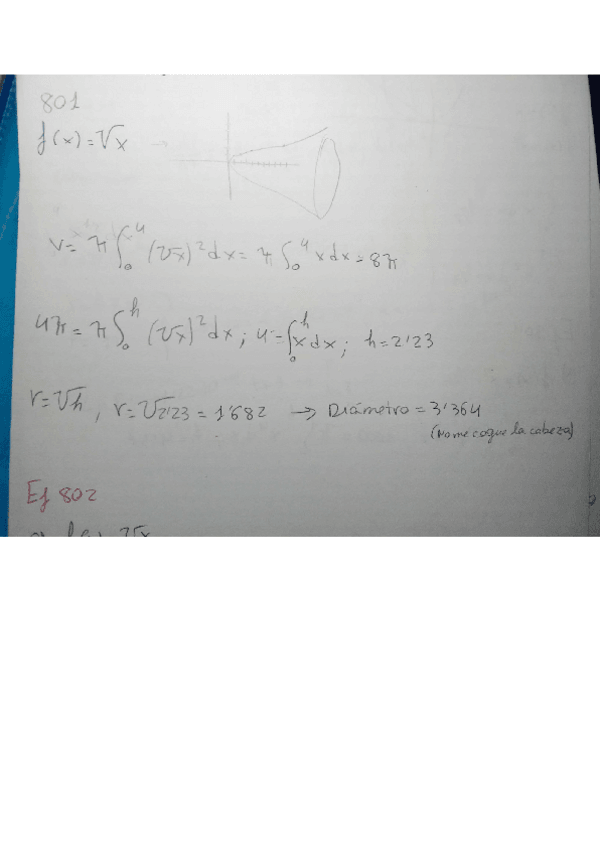 801
f(x) = √x
V = π ∫₀⁴ (√x)² dx = π ∫₀⁴ x dx = 8π
4π = π ∫₀ʰ (√x)² dx ; 4 = ∫₀ʰ x dx ; h = 2'23
r = √h , r = √2'23 = 1'682 → Diámetro = 3'364
(No me coque la cabeza)
Ej 802